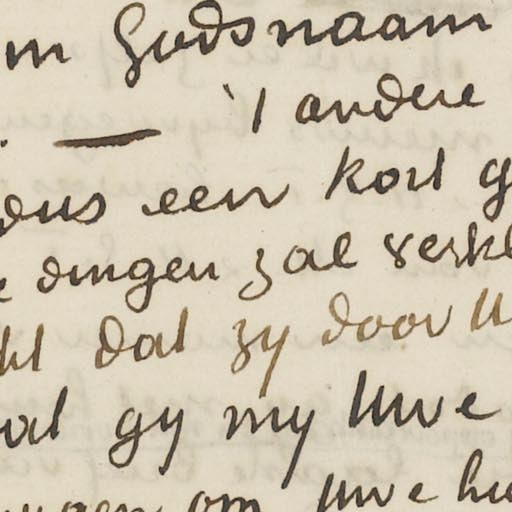 m Godsnaam
. — 't andere
dus een kort g
dingen zal verkl
dat zy door U
at gy my Uwe
om Uwe hu